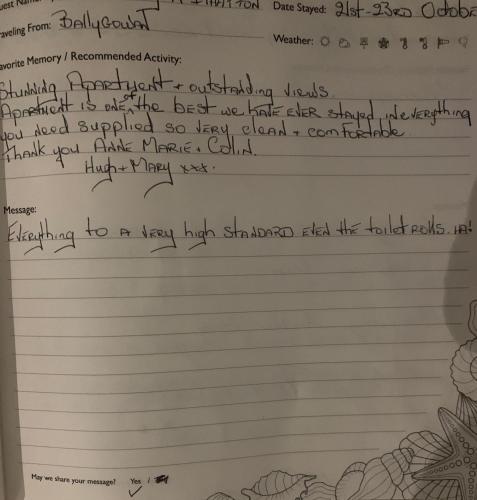 uest Nam
TON
Date Stayed: 21st-23RD Octobe
aveling From: BALLYGOWAN
Weather:
avorite Memory / Recommended Activity:
Stunning APARTMENT + outstanding views.
APARTMENT is ONE of the best we HAVE EVER stayed in everything
you need supplied so very clean + comfortable
Thank you ANNE MARIE + Colin.
Hugh + MARY xxx.
Message:
Everything to A very high STANDARD EVEN the toilet ROLLS. HA!
May we share your message? Yes /